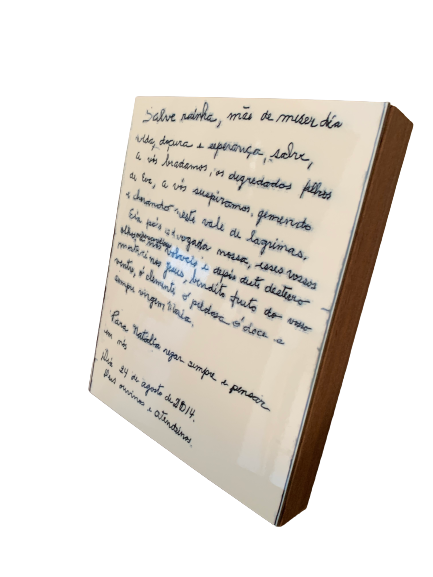 Salve rainha, mãe de miser dia
vida, doçura e esperança, salve,
a vós bradamos, os degredados filhos
de Eva, a vós suspiramos, gemendo
e chorando neste vale de lagrimas,
Eia pois advogada nossa, esses vossos
olhos volvei e depois deste desterro
mostrai nos Jesus, bendito fruto do vosso
ventre, ó clemente ó piedosa ó doce e
sempre virgem Maria.
Para Natalia rezar sempre e pensar
em nós
Dia 24 de agosto de 2014.
Deus